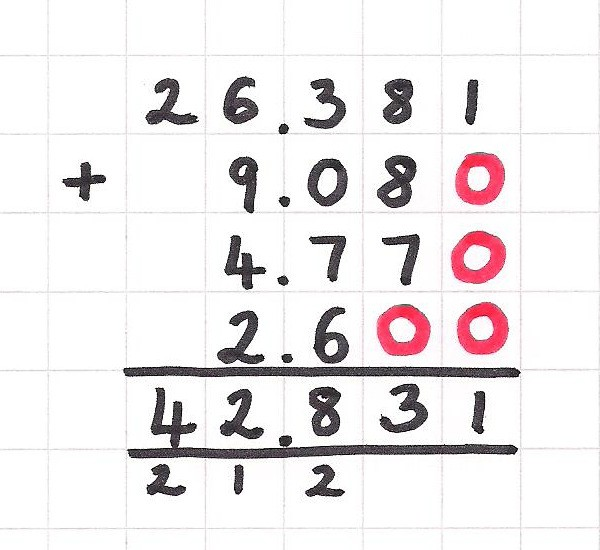 26.381
+ 9.080
4.770
2.600
42.831
2 1 2